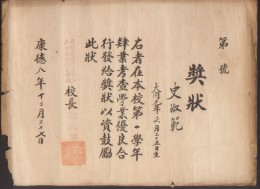 第 號
獎狀
史淑範
大同二年六月二十五日生
右者在本校第一學年
肄業考查學業優良合
行發給獎狀以資鼓勵
此狀
校長
康德八年十二月二十七日